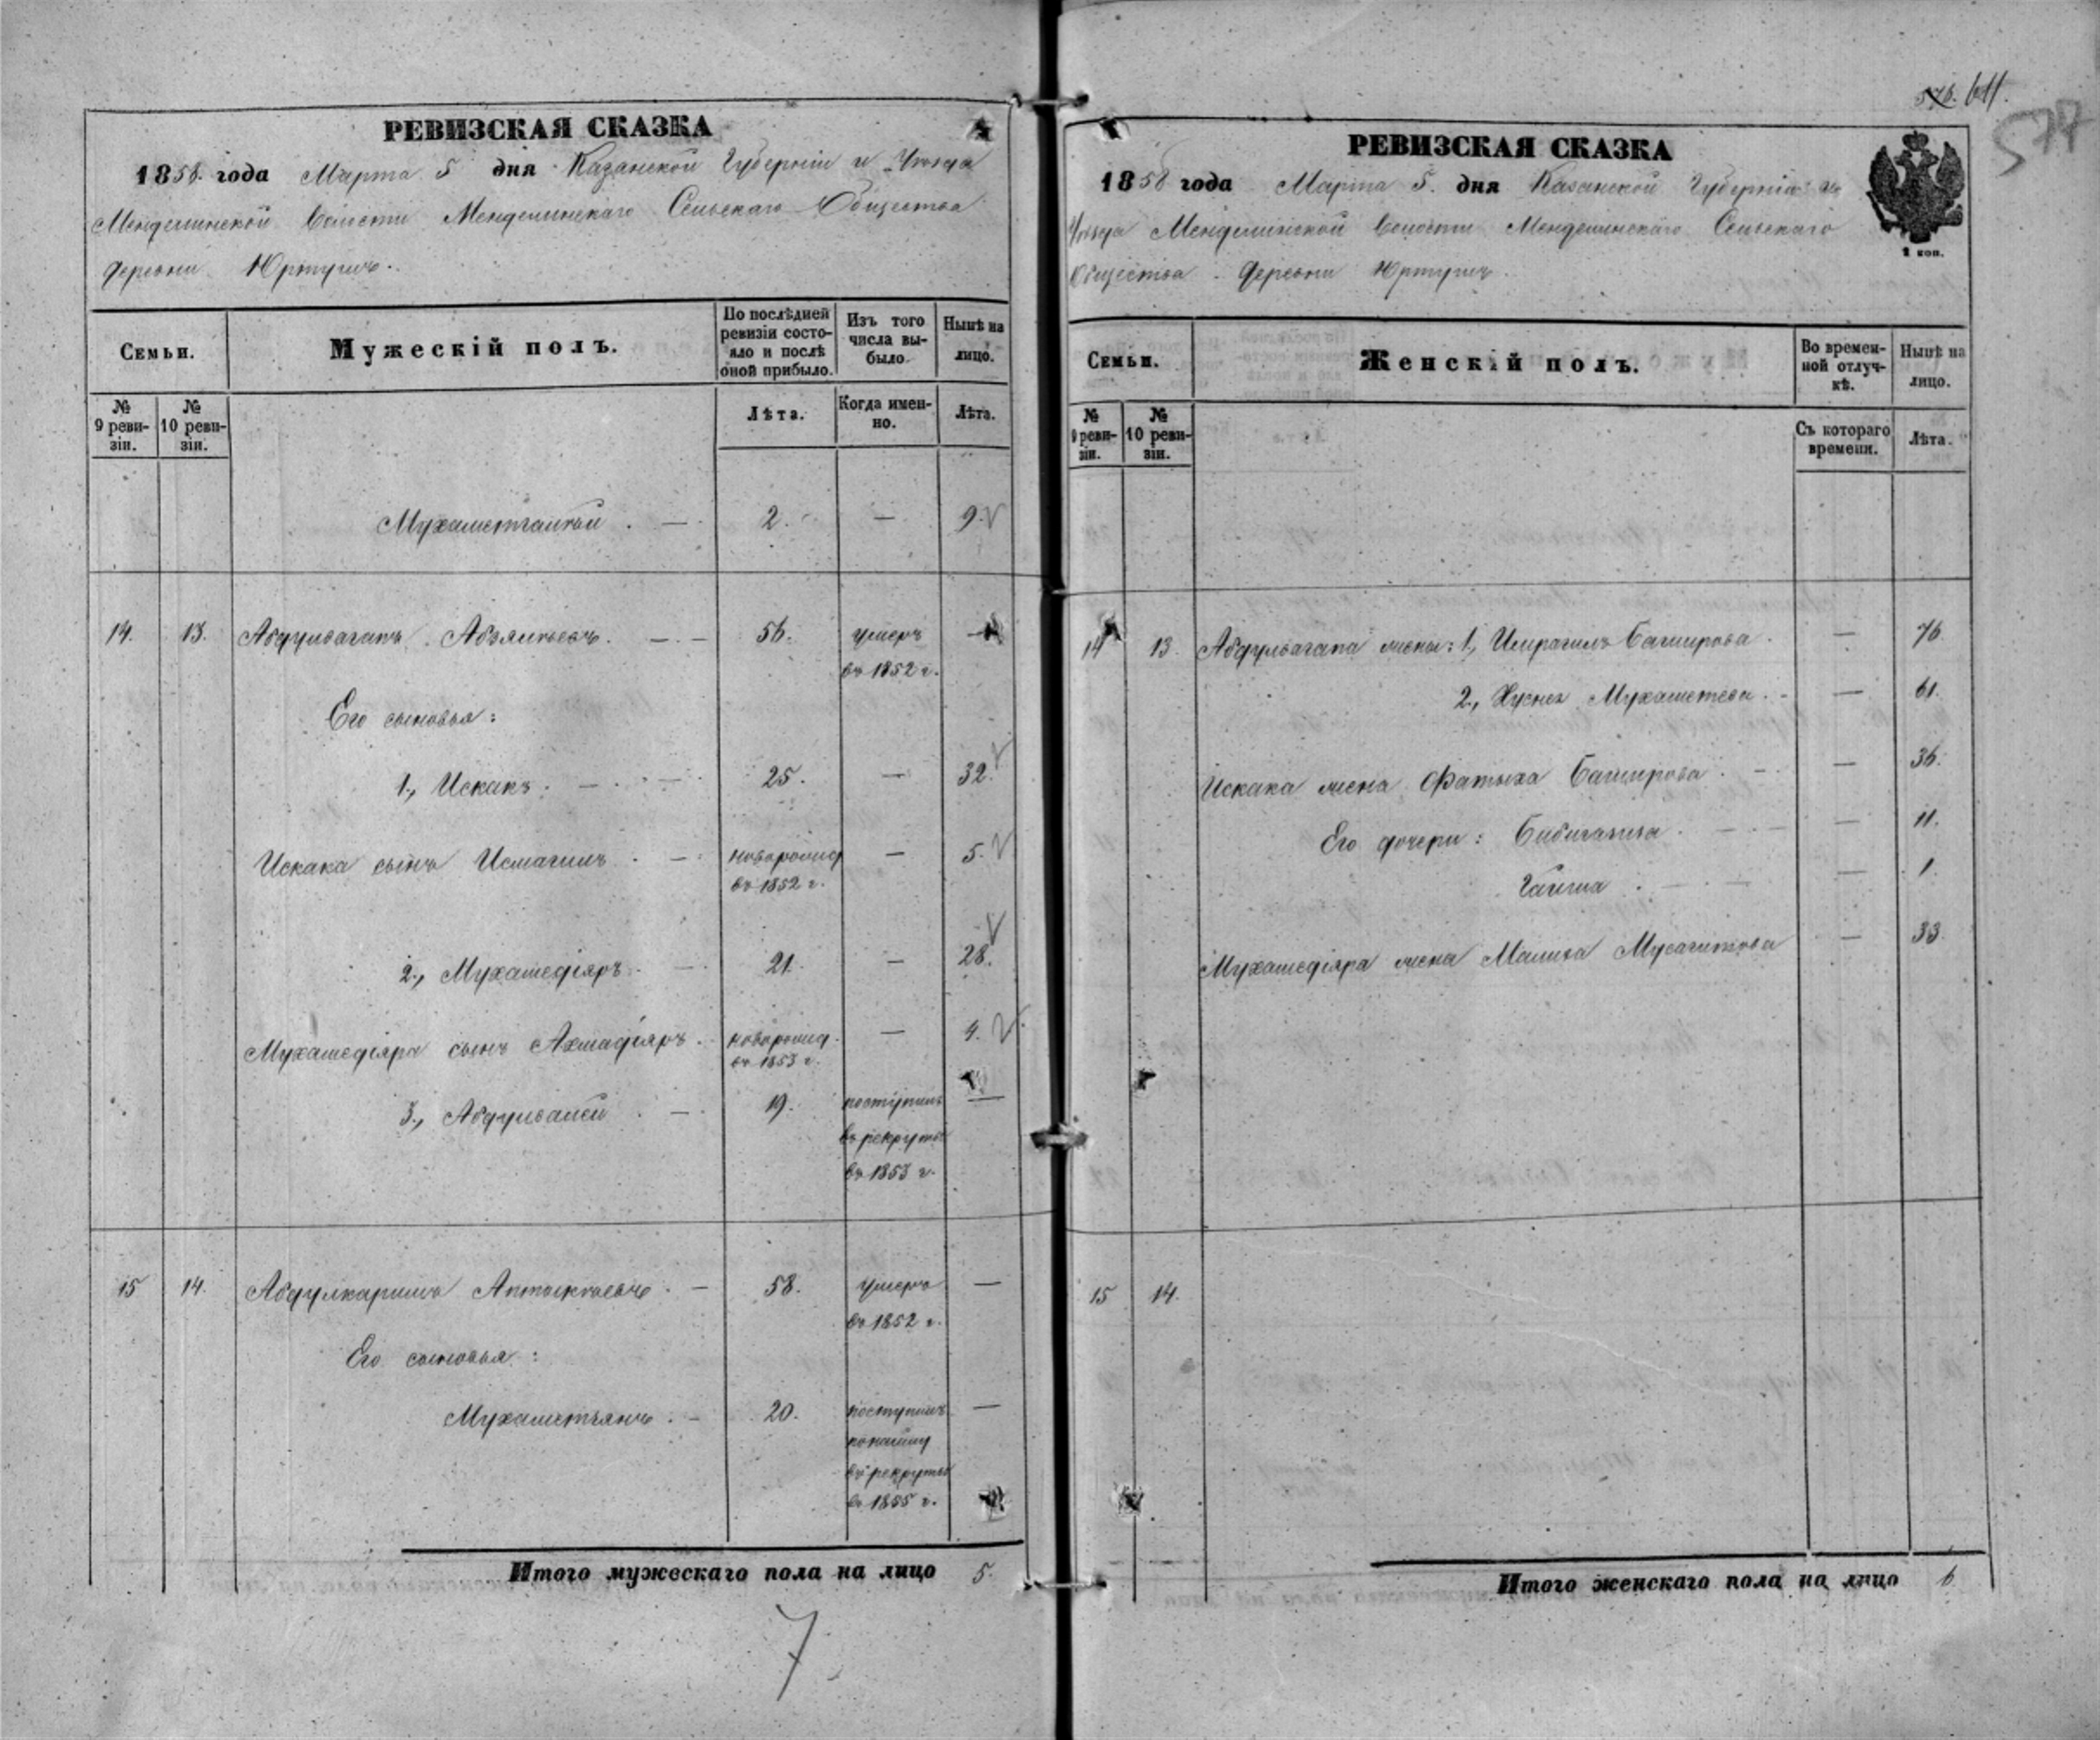 РЕВИЗСКАЯ СКАЗКА
1858 года Марта 5 дня Казанской Губерніи и Уѣзда
Менделинской Волости Менделинскаго Сельскаго Общества
деревни Юртушъ.
Семьи.
Мужескій полъ.
По послѣдней ревизіи состо-
яло и послѣ
оной прибыло.
Изъ того
числа вы-
было.
Нынѣ на
лицо.
№
9 реви-
зіи.
№
10 реви-
зіи.
Лѣта.
Когда имен-
но.
Лѣта.
2. — 9.
14. 13. Абдулвагапъ 56. умеръ —
въ 1852 г.
Его сыновья:
1., Искакъ. 25. — 32.
Искака сынъ Исмагилъ новорожд — 5.
въ 1852 г.
2., Мухамедіяръ 21. — 28.
Мухамедіяра сынъ Ахмадіяръ. новорожд. — 4.
въ 1853 г.
3., Абдулвалей 19. поступилъ —
въ рекруты
въ 1853 г.
15 14. Абдулкаримъ 58. умеръ —
въ 1852 г.
Его сыновья:
Мухаметьянъ. 20. поступилъ —
въ рекруты
въ 1855 г.
Итого мужескаго пола на лицо 5.
7
576. 611.
577
РЕВИЗСКАЯ СКАЗКА
1858 года Марта 5. дня Казанской Губерніи и
Уѣзда Менделинской Волости Менделинскаго Сельскаго
Общества деревни Юртушъ.
1 коп.
Семьи.
Женскій полъ.
Во времен-
ной отлуч-
кѣ.
Нынѣ на
лицо.
№
9 реви-
зіи.
№
10 реви-
зіи.
Съ котораго
времени.
Лѣта.
14 13. Абдулвагапа жены: 1., Баширова. — 76
2., Хусна Мухаметева. — 61.
Искака жена Фатыха Баширова. — 36.
Его дочери: — 11.
Гайша — 1.
Мухамедіяра жена Малика — 33.
15 14.
Итого женскаго пола на лицо 6